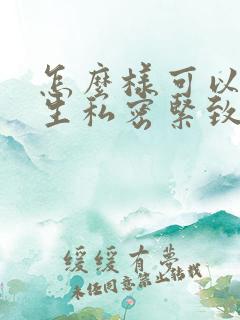 怎麼樣可以
生私密緊致
緩緩有夢
未经同意禁止转载